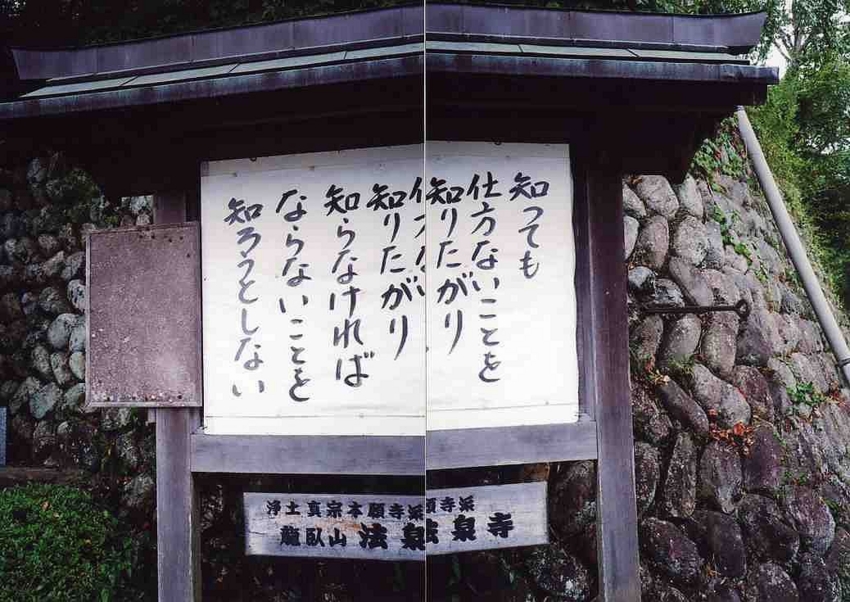 知っても
仕方ないことを
知りたがり
知りたがり
知らなければ
ならないことを
知ろうとしない
浄土真宗本願寺派願寺派
龍臥山 法泉法泉寺